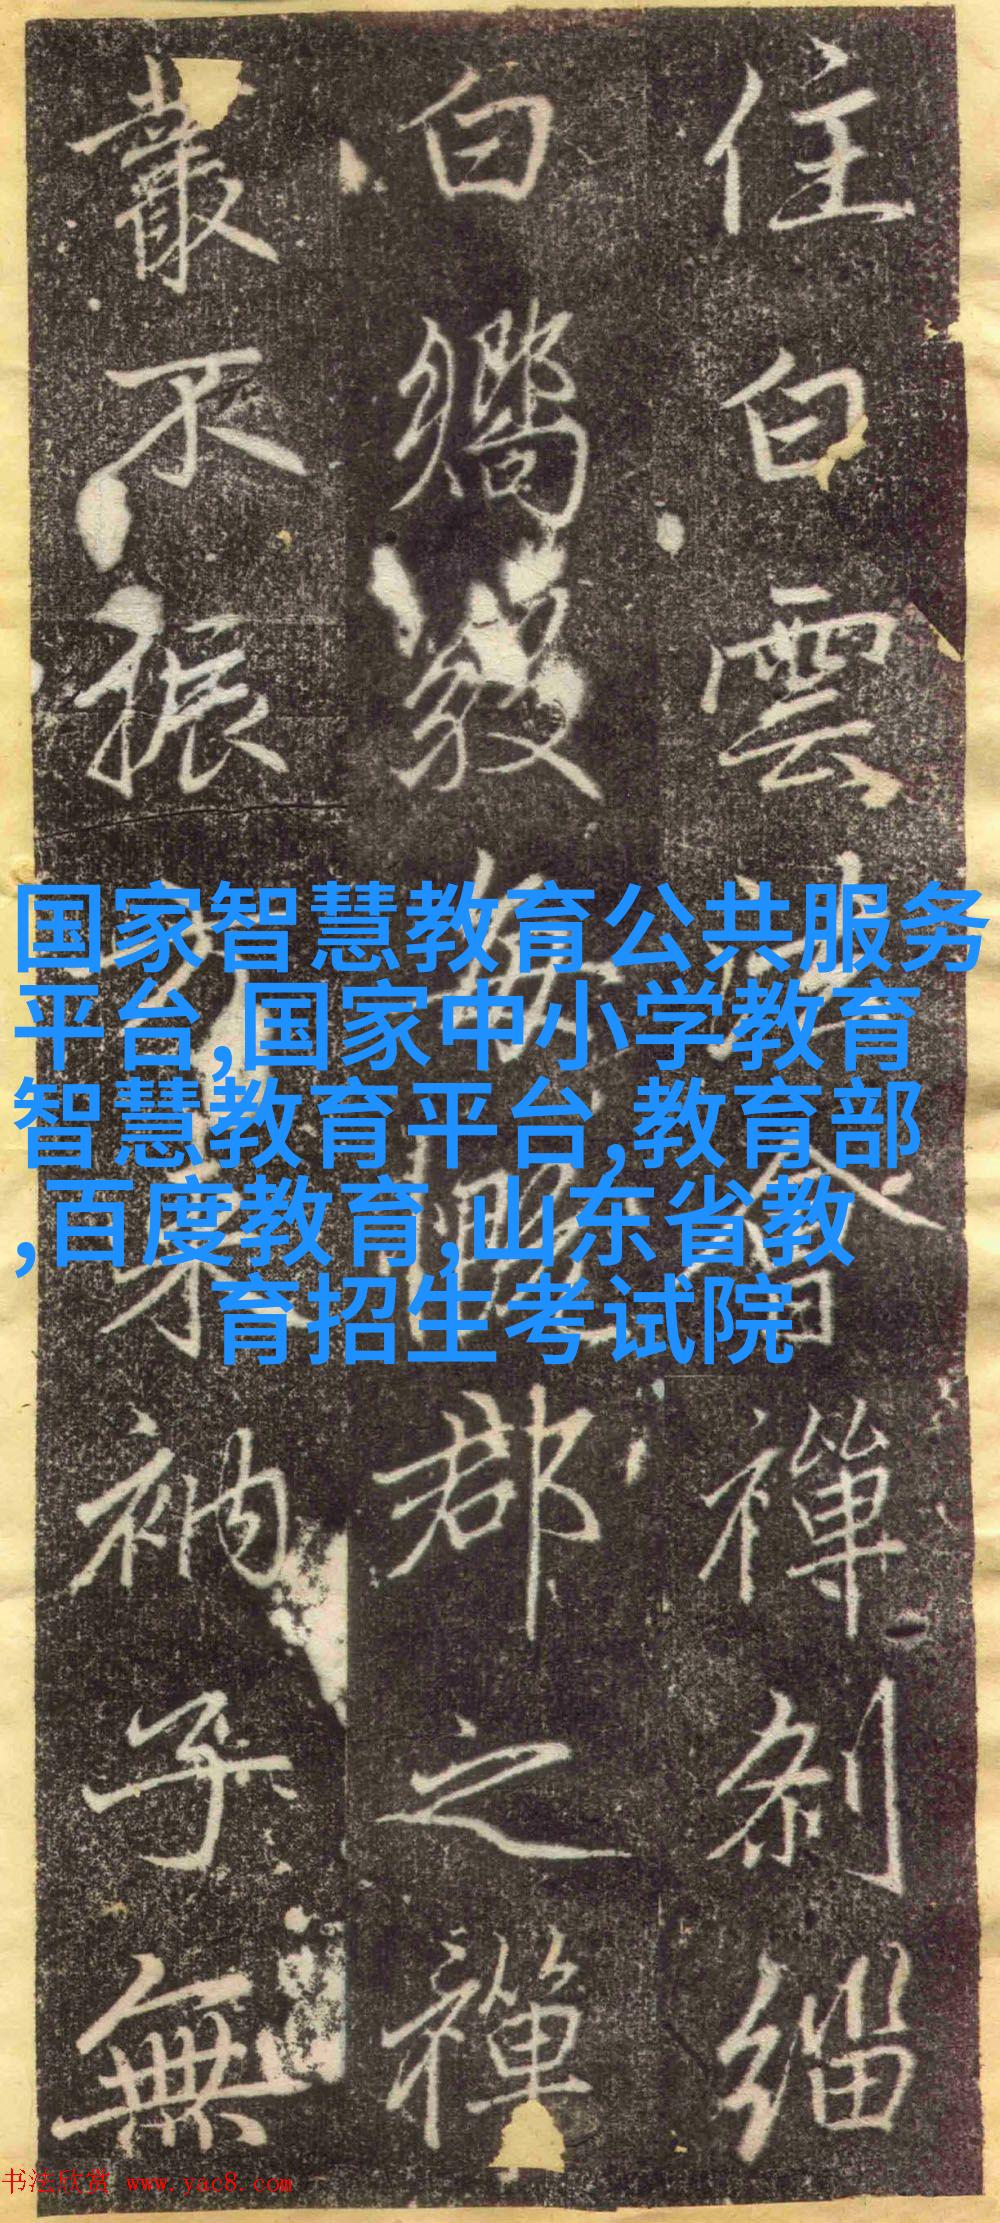 住白雲禪刹緇
白郡之禪
叢不振衲子無
国家智慧教育公共服务
平台,国家中小学教育
智慧教育平台,教育部
,百度教育,山东省教
育招生考试院
书法欣赏 www.yac8.com